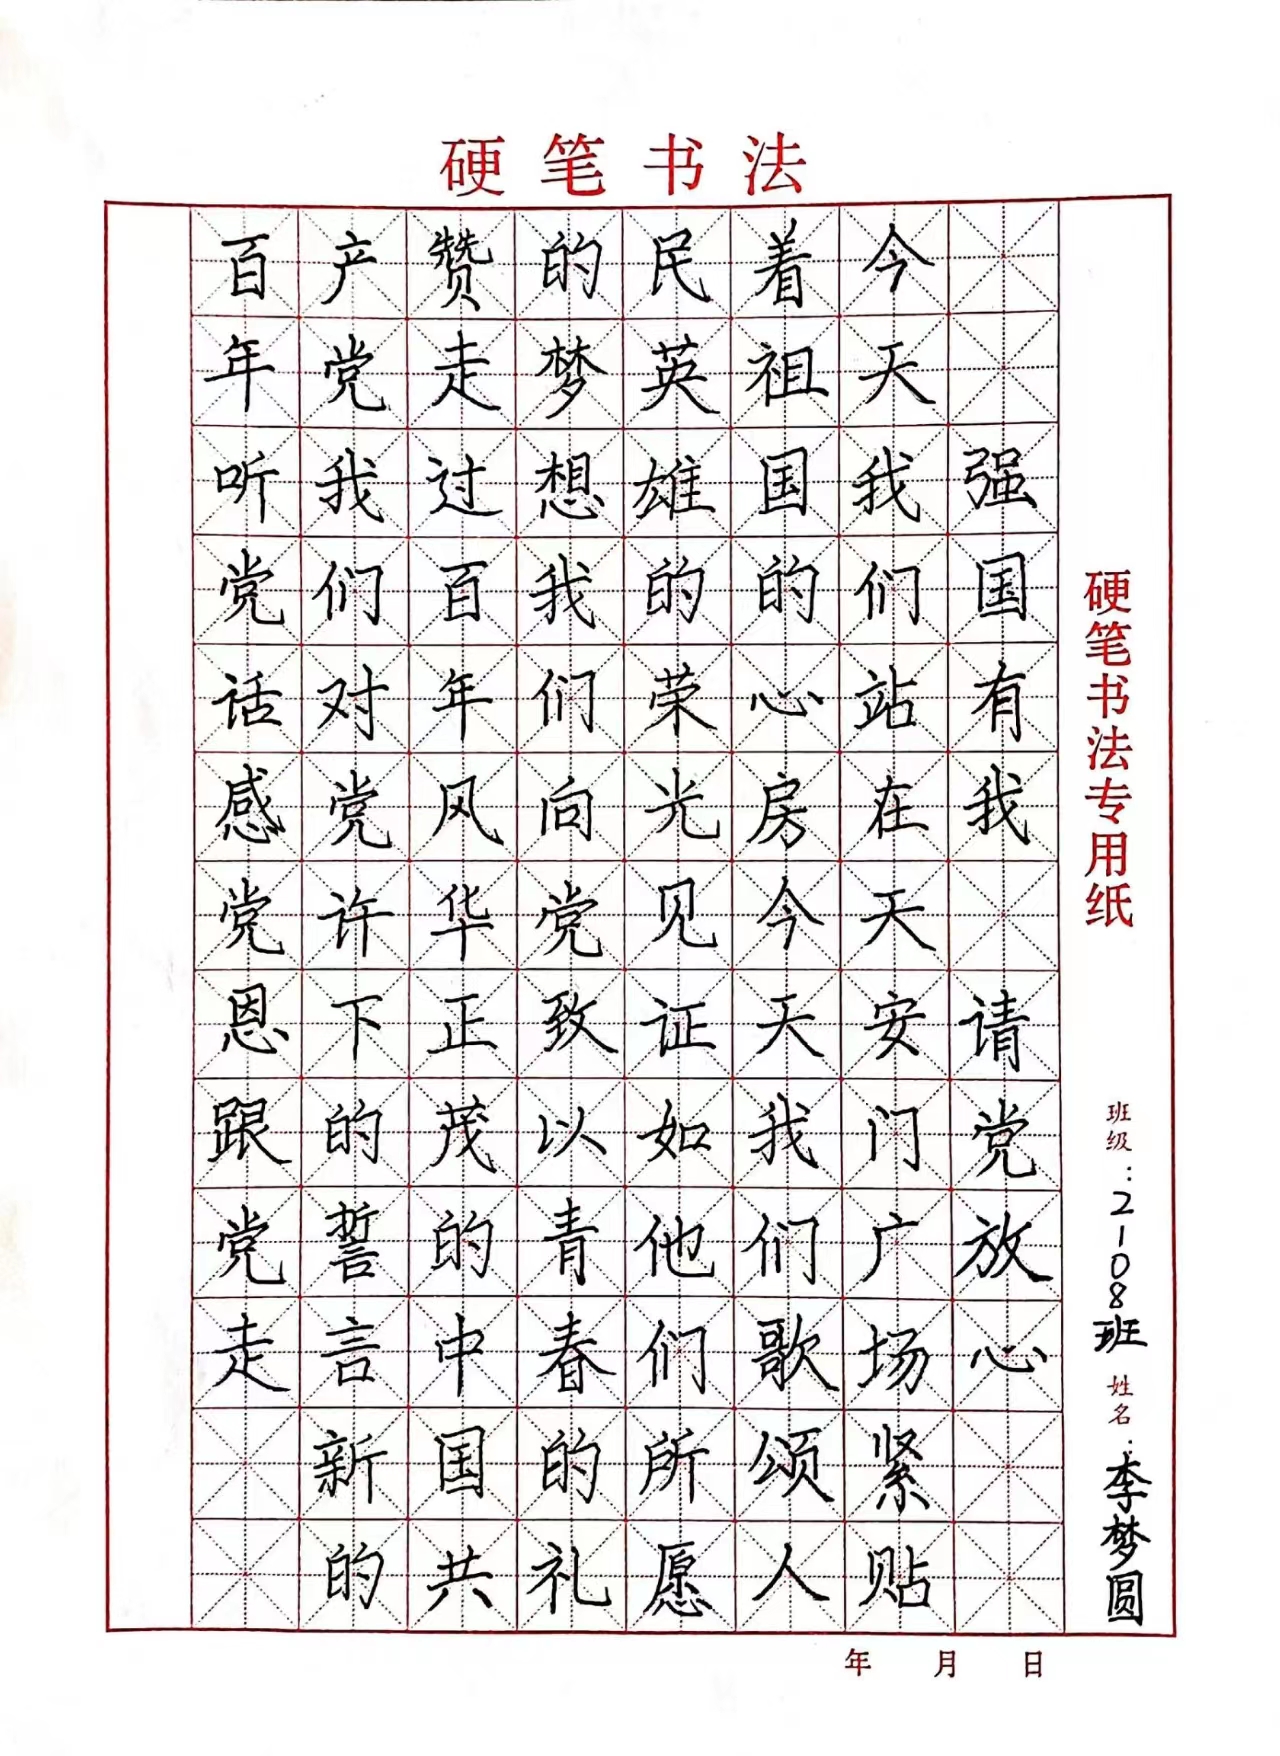 硬笔书法
强国有我 请党放心
今天我们站在天安门广场紧贴
着祖国的心房今天我们歌颂人
民英雄的荣光见证如他们所愿
的梦想我们向党致以青春的礼
赞走过百年风华正茂的中国共
产党我们对党许下的誓言新的
百年听党话感党恩跟党走
硬笔书法专用纸
班级:2108班 姓名:李梦圆
年 月 日